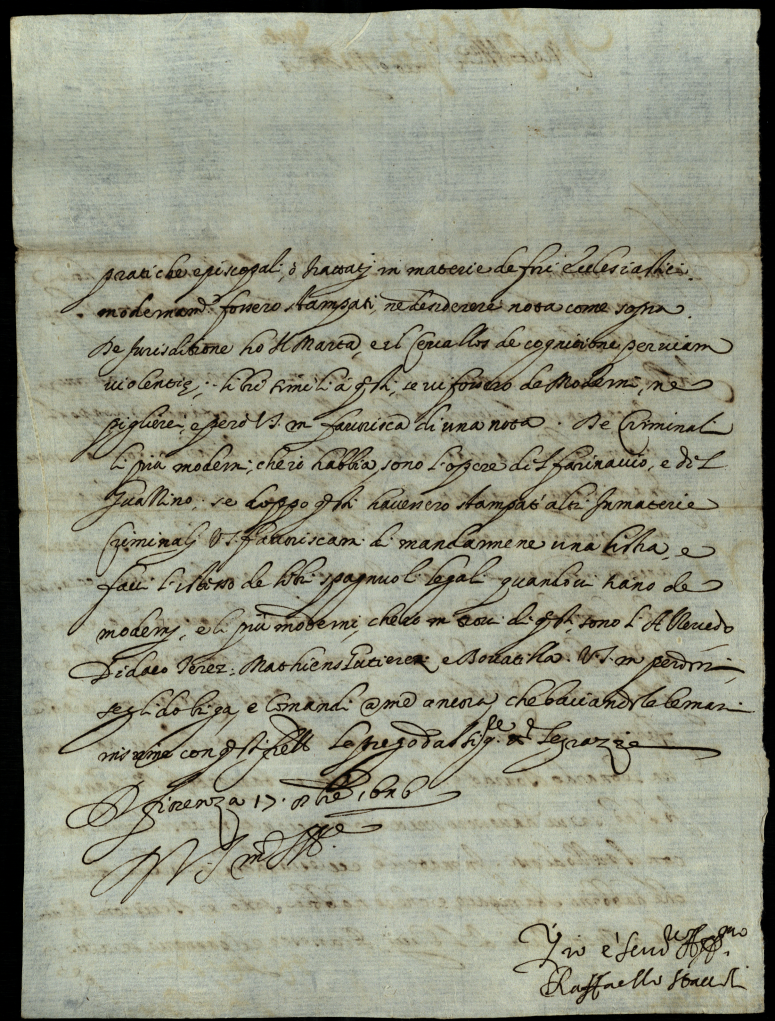 pratiche episcopali, ò trattati in materie de fori Ecclesiastici
modernam.te fossero stampati, ne desiderere nota come sopra.
De Jurisditione ho il Marta, e il Cevallos de cognitione per viam
violentię, libri simili à q.sti, se vi fossero de Moderni, ne
pigliere, e però V.S. m favorisca di una nota. De Criminali
li più moderni, che io habbia, sono l'opere del farinaccio, e del
Guazzino, se doppo q.sti havessero stampat' altri In materie
Criminali V.S. favoriscami di mandarmene una lista, e
facci l'istesso de libri spagnuoli legali quando vi siano de
moderni, e li più moderni, che io mi trovi di q.sti, sono l'Azevedo
Didaco Perez, Mathienso Gutierez e Bovatilla. V.S. mi perdoni,
se gli dò briga, e Comandi à me ancora, che baciandole le mani
Firenza 17. 8bre 1626
D V. S. m
Ser.re Aff.mo
Raffaello Staccoli